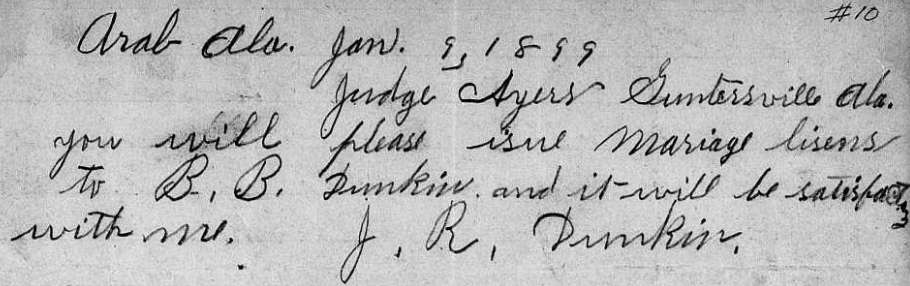 #10
Arab Ala. Jan. 9, 1899
Judge Ayers Guntersville Ala.
you will please isue Mariage lisens
to B. B. Dunkin. and it will be satisfactry
with me. J. R. Dunkin.